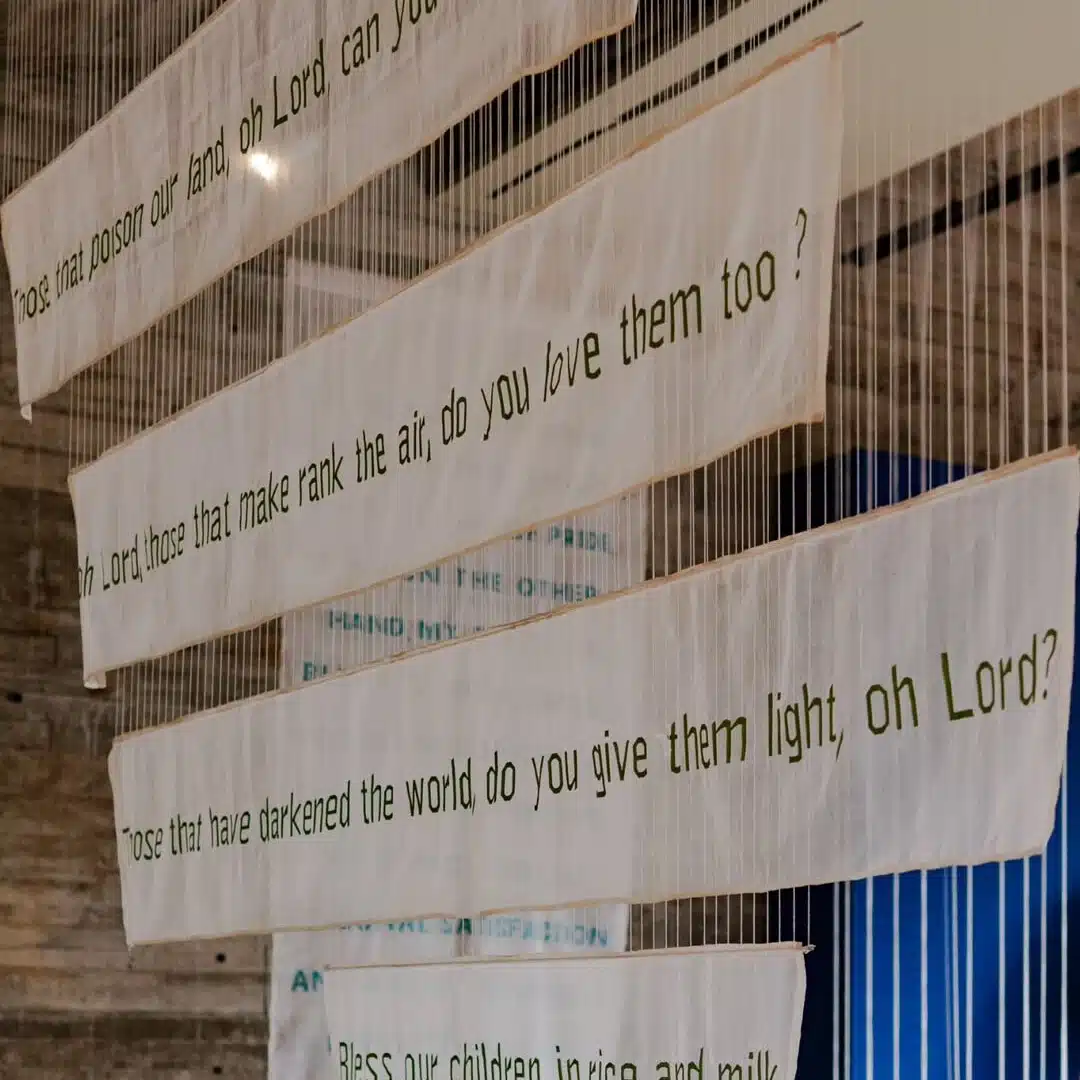 Those that poison our land, oh Lord, can you
oh Lord, those that make rank the air, do you love them too ?
PRIDE,
ON THE OTHER
HAND, MY
Those that have darkened the world, do you give them light, oh Lord?
SATISFACTION
Bless our children in rice and milk